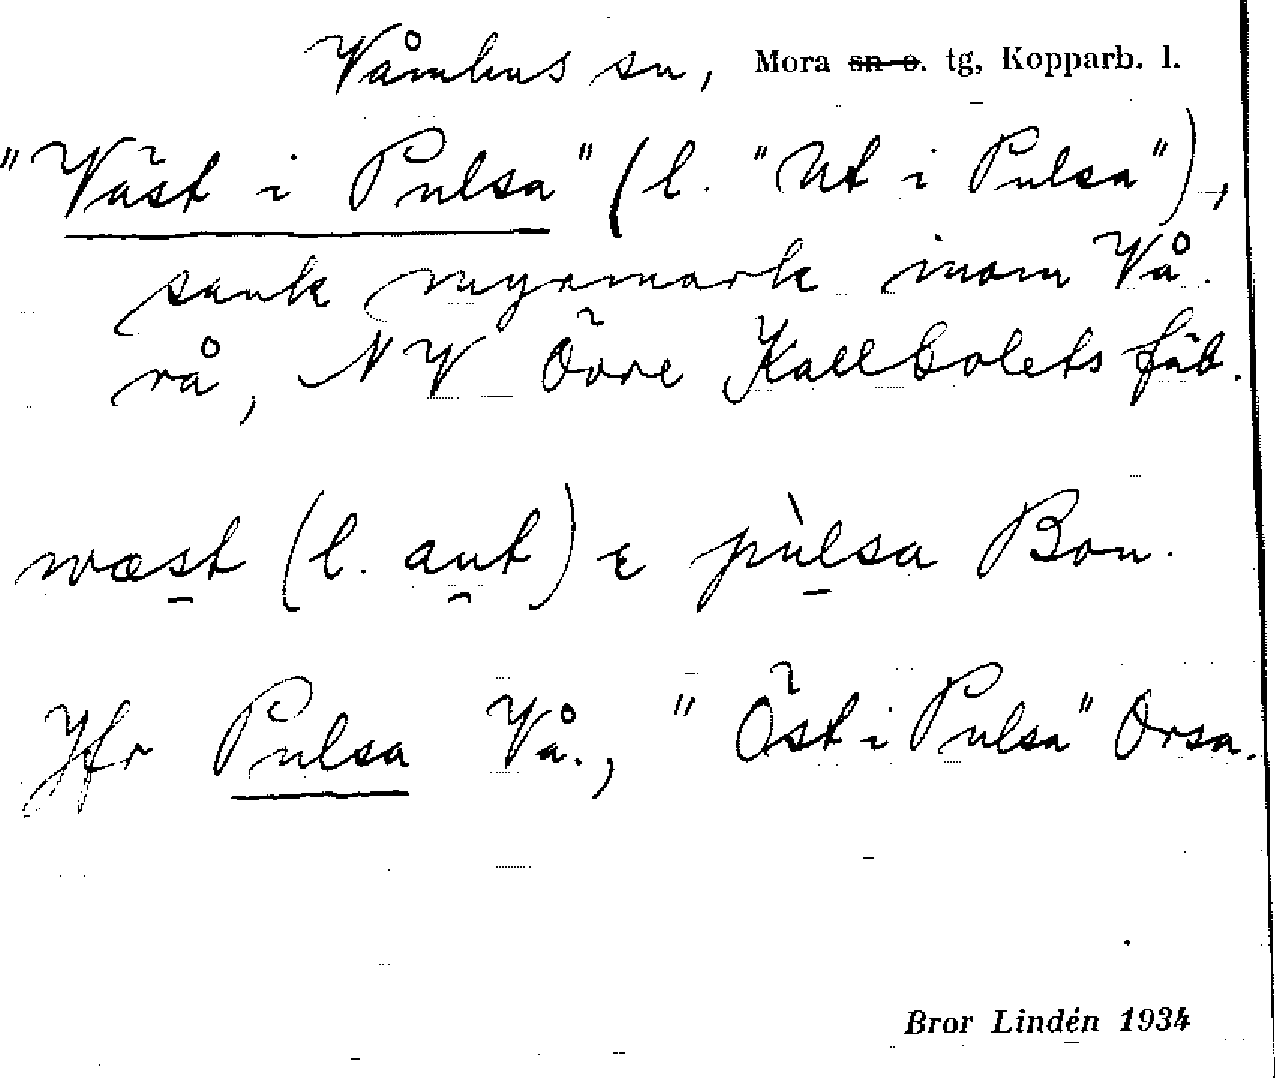 Våmhus sn, Mora sn o. tg, Kopparb. l.
"Väst i Pulsa" (l. "Ut i Pulsa"),
sank myrmark inom Vå.
rå, NV Övre Kallbolets fäb.
wæst (l. aut) ε pùlsa Bon.
Jfr Pulsa Vå., "Öst i Pulsa" Orsa.
Bror Lindén 1934